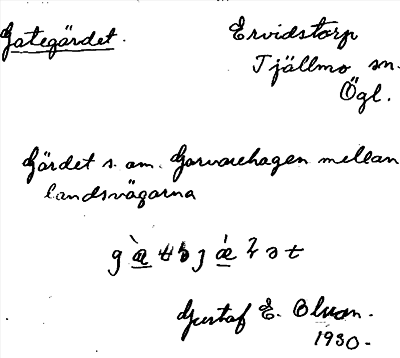 Gategärdet.
Ervidstorp
Tjällmo sn.
Ögl.
Gärdet s. om. Garvarehagen mellan
landsvägarna
Gustaf E. Olson.
1930.